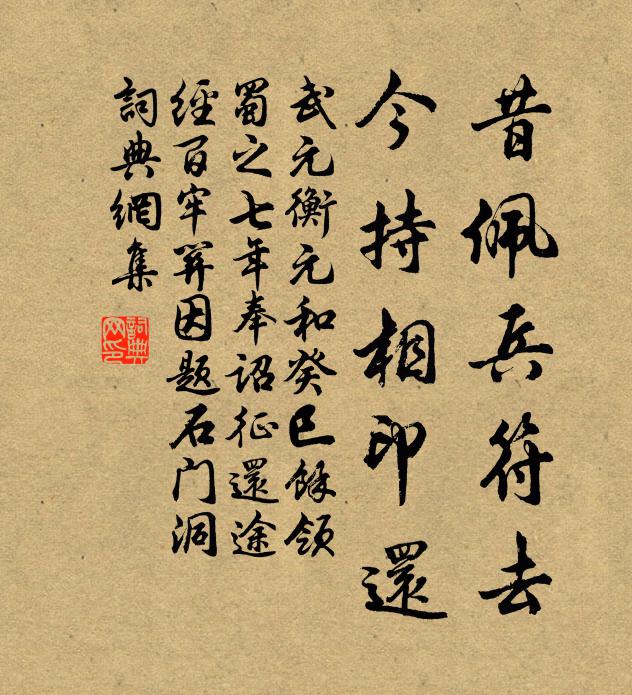 昔佩兵符去
今持相印還
武元衡元和癸巳餘領
蜀之七年奉詔征還途
經百牢關因題石门洞
詞典網集
詞典
网印